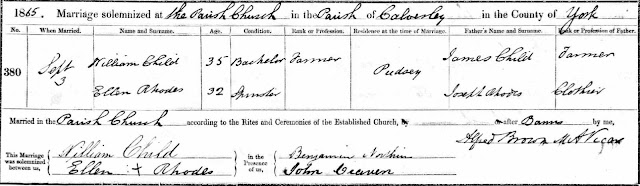 1865. Marriage solemnized at the Parish Church in the Parish of Calverley in the County of York
No. When Married. Name and Surname. Age. Condition. Rank or Profession. Residence at the time of Marriage. Father's Name and Surname. Rank or Profession of Father.
380 Sept 3 William Child 35 Bachelor Farmer Pudsey James Child Farmer
Ellen Rhodes 32 Spinster Joseph Rhodes Clothier
Married in the Parish Church according to the Rites and Ceremonies of the Established Church, by or after Banns by me,
Alfred Brown M.A Vicar
This Marriage was solemnized between us, William Child in the Presence of us, Benjamin
Ellen + Rhodes John Craven